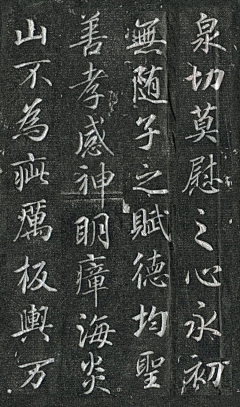 泉切莫慰之心永初
無随子之賦德均聖
善孝感神明瘴海炎
山不為疵厲板輿万